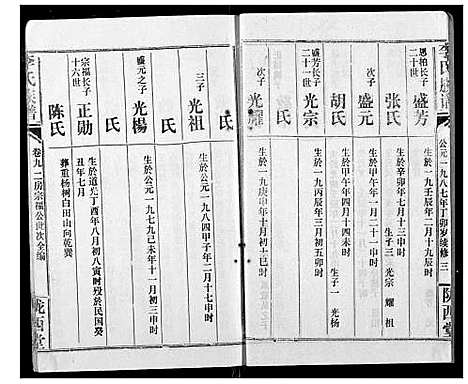 李氏族譜
公元一九八七年丁卯岁续修 三
陇西堂
思柏长子
二十世
盛芳
生於一九壬辰年二月十九日
张氏
生於辛卯年七月十三申时
生子三 光宗 耀 祖
次子
盛元
生於甲午年一月二十一申时
胡氏
生於甲午年四月十四未时
生子一 光杨
盛芳长子
二十一世
光宗
生於一九丙辰年三月初五卯时
次子
光耀
生於一九庚申年十月十七巳时
氏
三子
光祖
生於公元一九八四甲子年二月十七申时
氏
盛元之子
光楊
生於公元一九七九己未年十一月初三申时
氏
宗福长子
十六世
正勋
生於道光丁酉年八月初八寅时 殁於民国癸丑年七月
葬重杨树白田山向乾巽
陈氏
李氏族谱
卷九 二房宗福公世次全编
陇西堂